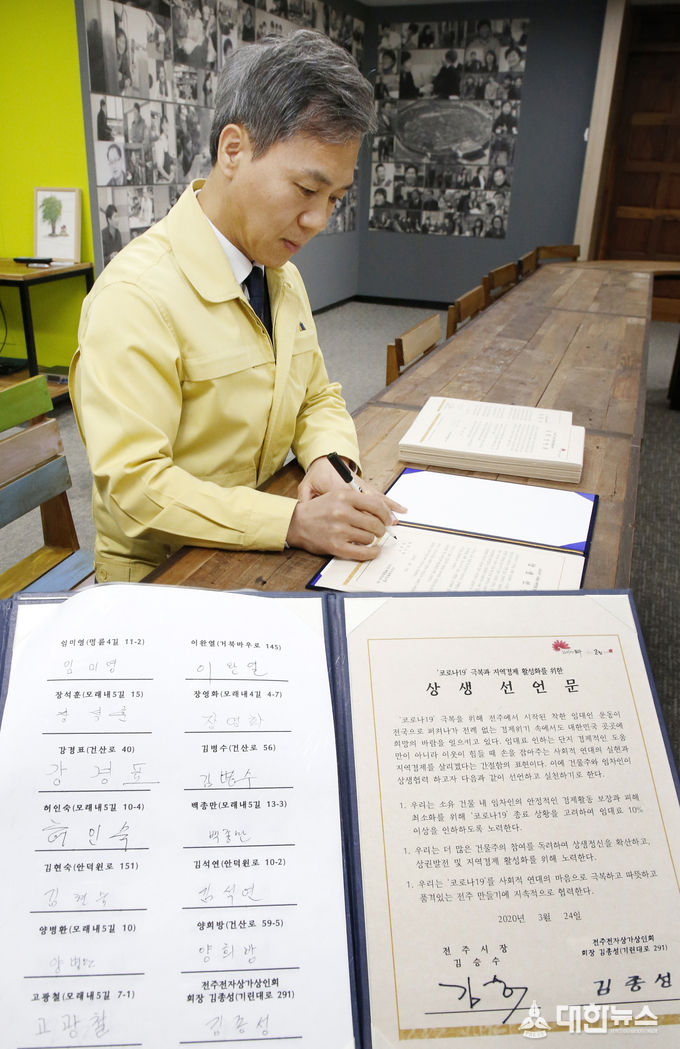 임미영(명륜4길 11-2)
이완열(거북바우로 145)
임미영
이완열
장석훈(모래내5길 15)
장영화(모래내4길 4-7)
장석훈
장영화
강경표(건산로 40)
김병수(건산로 56)
강경표
김병수
허인숙(모래내5길 10-4)
백종만(모래내5길 13-3)
허인숙
백종만
김현숙(안덕원로 151)
김석연(안덕원로 10-2)
김현숙
김석연
양병환(모래내5길 10)
양희방(건산로 59-5)
양희방
고광철(모래내5길 7-1)
전주전자상가상인회
회장 김종성(기린대로 291)
고광철
김종성
'코로나19' 극복과 지역경제 활성화를 위한
상생선언문
'코로나19' 극복을 위해 전주에서 시작된 착한 임대인 운동이
전국으로 퍼져나가 전례 없는 경제위기 속에서도 대한민국 곳곳에
희망의 바람을 일으키고 있다. 임대료 인하는 단지 경제적인 도움
만이 아니라 이웃이 힘들 때 손을 잡아주는 사회적 연대의 실현과
지역경제를 살리겠다는 간절함의 표현이다. 이에 건물주와 임차인이
상생협력 하고자 다음과 같이 선언하고 실천하기로 한다.
1. 우리는 소유 건물 내 임차인의 안정적인 경제활동 보장과 피해
최소화를 위해 '코로나19' 종료 상황을 고려하여 임대료 10%
이상을 인하하도록 노력한다.
1. 우리는 더 많은 건물주의 참여를 독려하여 상생정신을 확산하고,
상권발전 및 지역경제 활성화를 위해 노력한다.
1. 우리는 '코로나19'를 사회적 연대의 마음으로 극복하고 따뜻하고
품격있는 전주 만들기에 지속적으로 협력한다.
2020년 3월 24일
전주시장
김승수
전주전자상가상인회
회장 김종성(기린대로 291)
김종성
대한뉴스